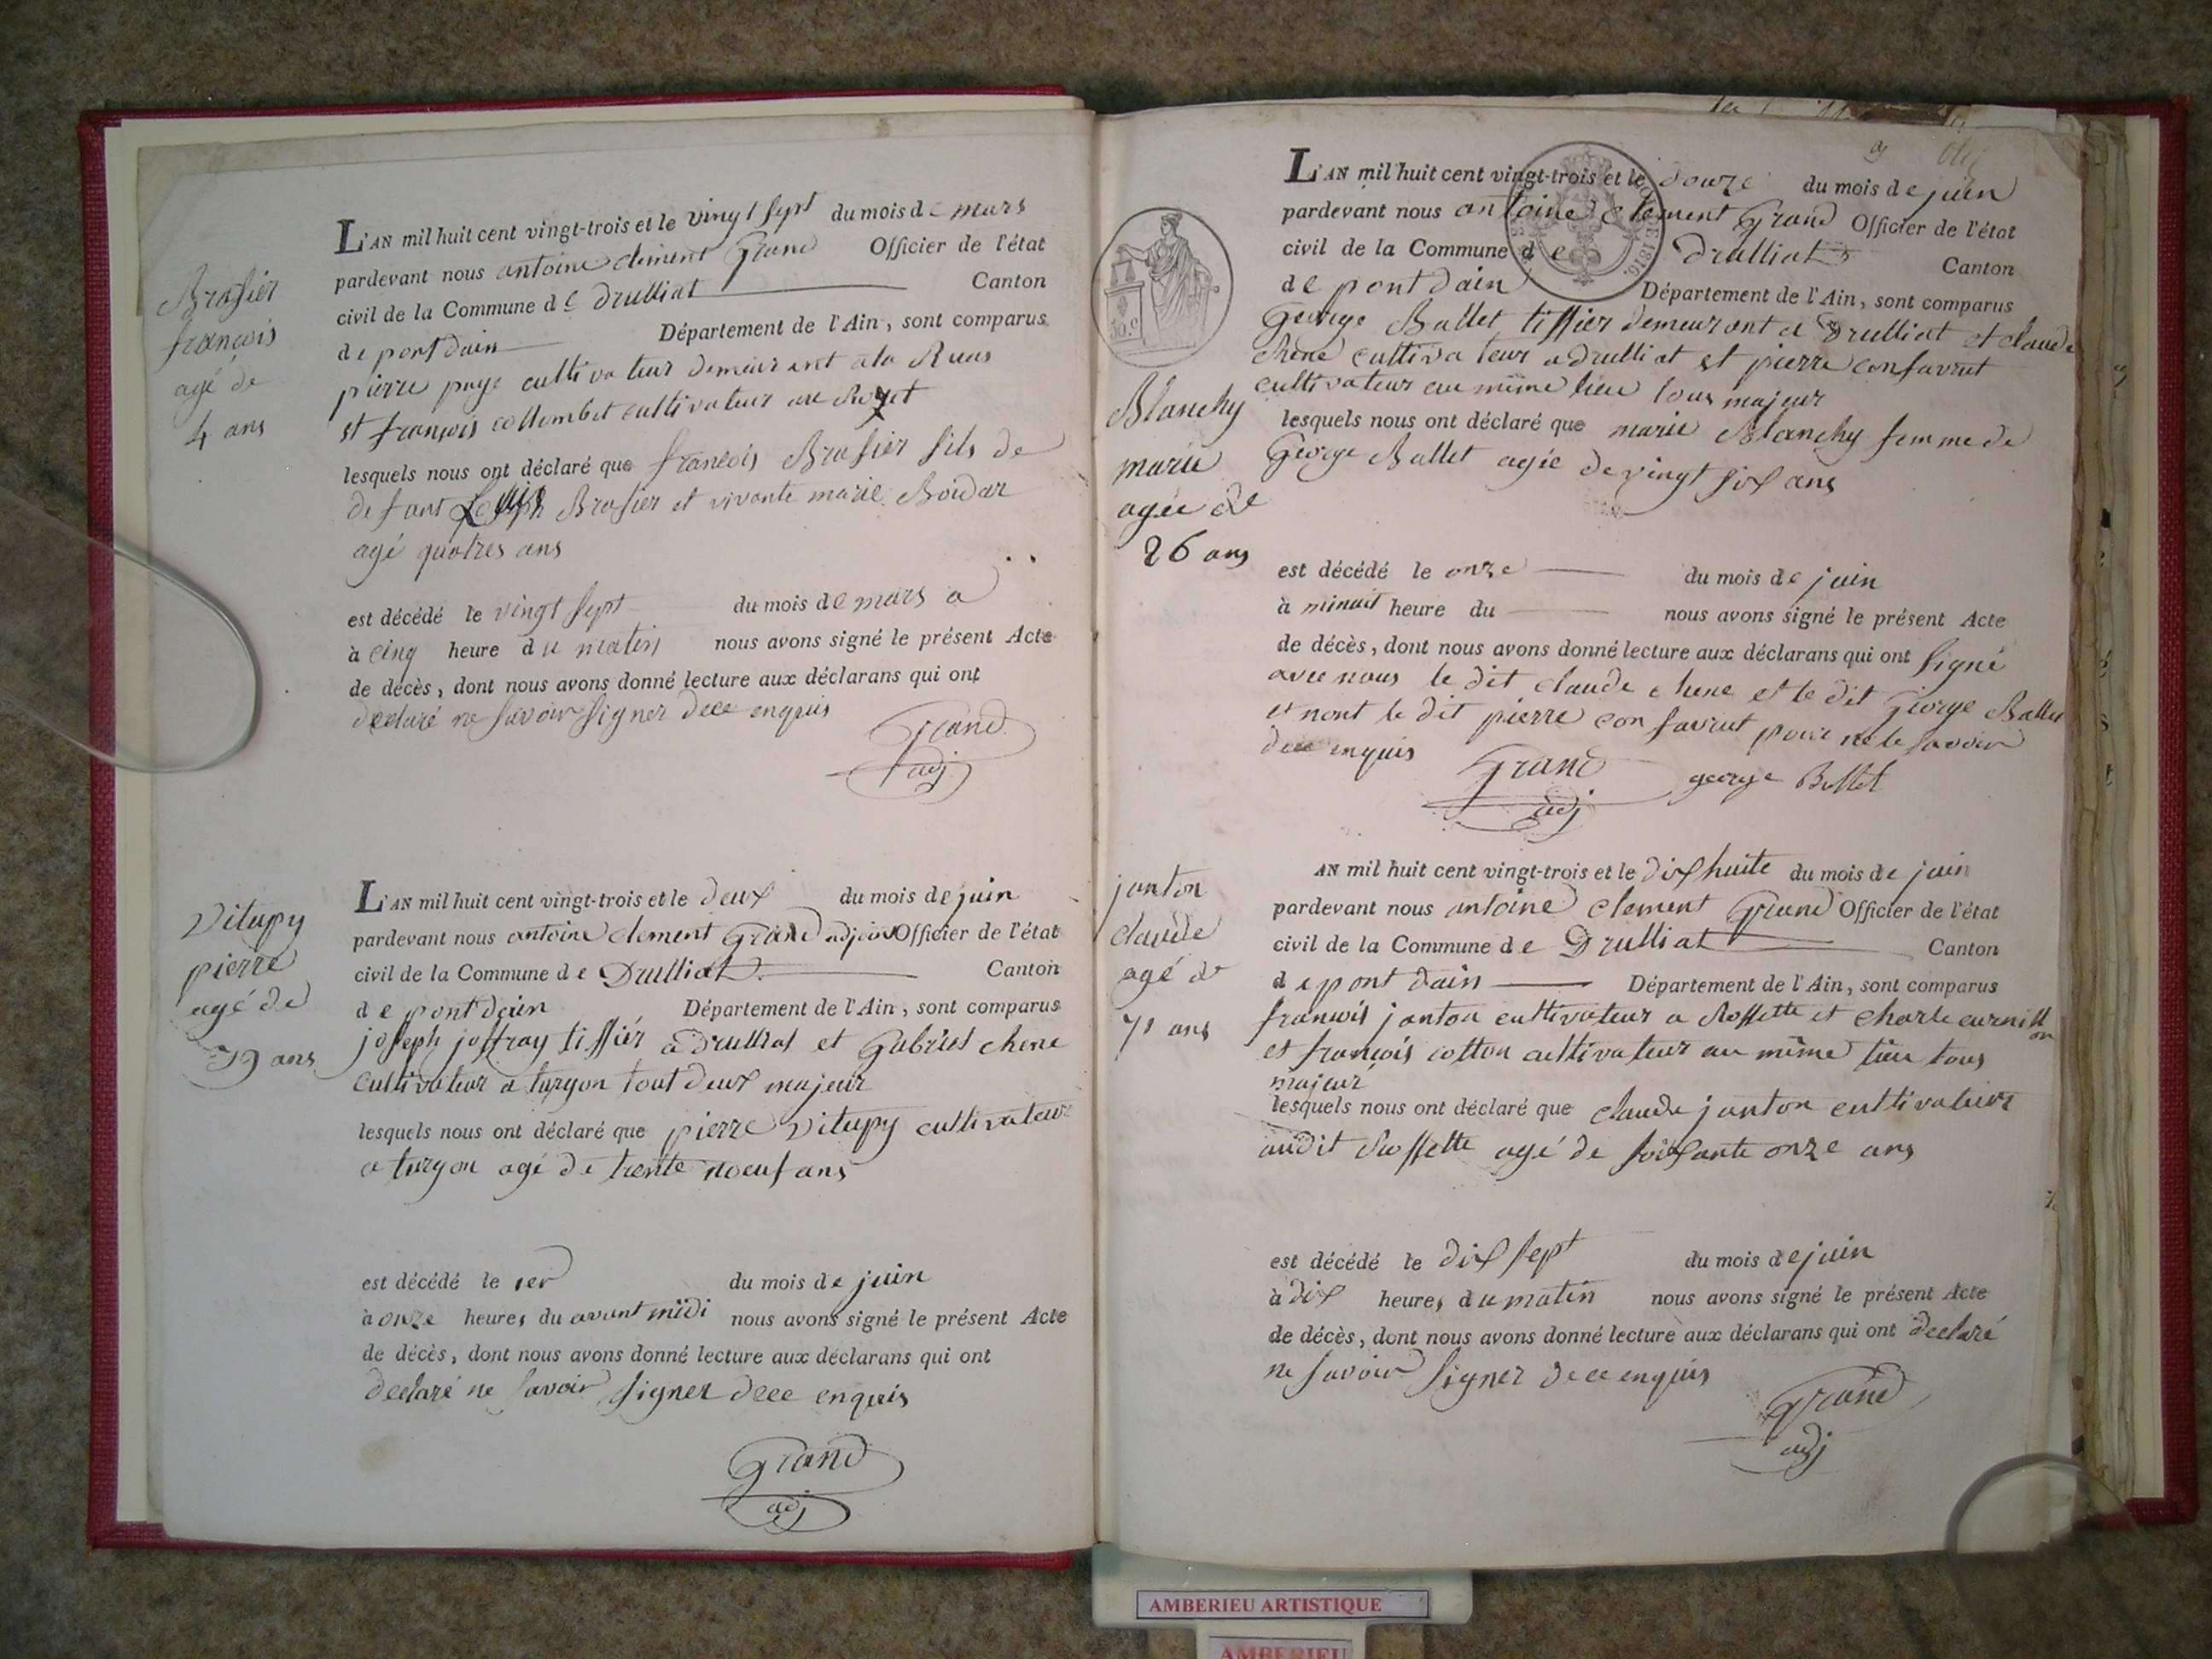 Brasier
françois
agé de
4 ans
L'AN mil huit cent vingt-trois et le vingt sept du mois de mars
pardevant nous antoine clement Grand Officier de l'état
civil de la Commune de Drulliat Canton
de pont dain Département de l'Ain, sont comparus
pierre puge cultivateur demeurant a la Ruas
et françois collombet cultivateur au
lesquels nous ont déclaré que francois Brasier fils de
defunt Brasier et vivante marie Boidar
agé quatres ans
est décédé le vingt sept du mois de mars a
à cinq heure du matin nous avons signé le présent Acte
de décès, dont nous avons donné lecture aux déclarans qui ont
declaré ne savoir signer dece enquis
Grand
adj
Vitupy
pierre
agé de
39 ans
L'AN mil huit cent vingt-trois et le deux du mois de juin
pardevant nous antoine clement Grand adjoint Officier de l'état
civil de la Commune de Drulliat Canton
de pont dain Département de l'Ain, sont comparus
joseph joffray tissier a drulliat et Gabriel chene
cultivateur a turgon tout deux majeur
lesquels nous ont déclaré que pierre Vitupy cultivateur
a turgon agé de trente noeuf ans
est décédé le 1er du mois de juin
à onze heures du avant midi nous avons signé le présent Acte
de décès, dont nous avons donné lecture aux déclarans qui ont
declaré ne savoir signer dece enquis
Grand
adj
L'AN mil huit cent vingt-trois et le douze du mois de juin
pardevant nous antoine clement Grand Officier de l'état
civil de la Commune de Drulliat Canton
de pont dain Département de l'Ain, sont comparus
George Ballet tissier demeurant a Drulliat et claude
chene cultivateur a drulliat et pierre confavrut
cultivateur au même lieu tous majeur
Blanchy
marie
agée de
26 ans
lesquels nous ont déclaré que marie Blanchy femme de
George Ballet agée de vingt six ans
est décédé le onze du mois de juin
à minuit heure du nous avons signé le présent Acte
de décès, dont nous avons donné lecture aux déclarans qui ont signé
avec nous le dit claude chene et le dit George Ballet
et nont le dit pierre confavrut pour ne le savoir
dece enquis
Grand
adj
george Bollet
janton
claude
agé de
71 ans
AN mil huit cent vingt-trois et le dix huite du mois de juin
pardevant nous antoine clement Grand Officier de l'état
civil de la Commune de Drulliat Canton
de pont dain Département de l'Ain, sont comparus
francois janton cultivateur a Rossette et charle curnillon
et françois cotton cultivateur au même lieu tous
majeur
lesquels nous ont déclaré que claude janton cultivateur
audit Rossette agé de soixante onze ans
est décédé le dix sept du mois de juin
à dix heures du matin nous avons signé le présent Acte
de décès, dont nous avons donné lecture aux déclarans qui ont declaré
ne savoir signer dece enquis
Grand
adj
AMBERIEU ARTISTIQUE
AMBERIEU